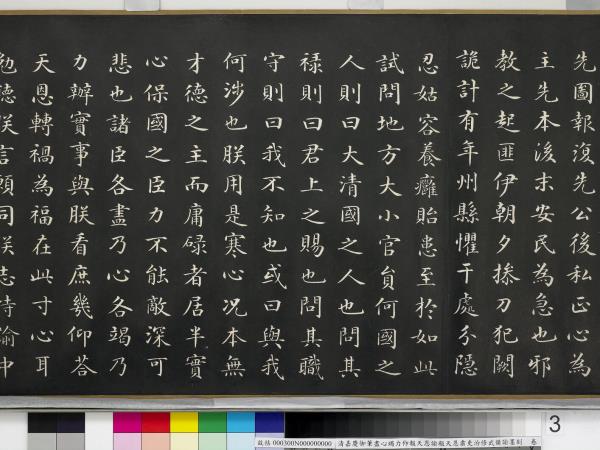 先圖報復先公後私正心為
主先本後末安民為急也邪
教之起匪伊朝夕摻刀犯闕
詭計有年州縣懼干處分隱
忍姑容養癰貽患至於如此
試問地方大小官員何國之
人則曰大清國之人也問其
祿則曰君上之賜也問其職
守則曰我不知也或曰與我
何涉也朕用是寒心况本無
才德之主而庸碌者居半實
心保國之臣力不能敵深可
悲也諸臣各盡乃心各竭乃
力辦實事與朕看庶幾仰荅
天恩轉禍為福在此寸心耳
朕言願同朕志特諭中
3
故帖 000300N000000000 清嘉慶御筆盡心竭力仰報天恩諭報天恩肅吏治修武備諭墨刻 卷